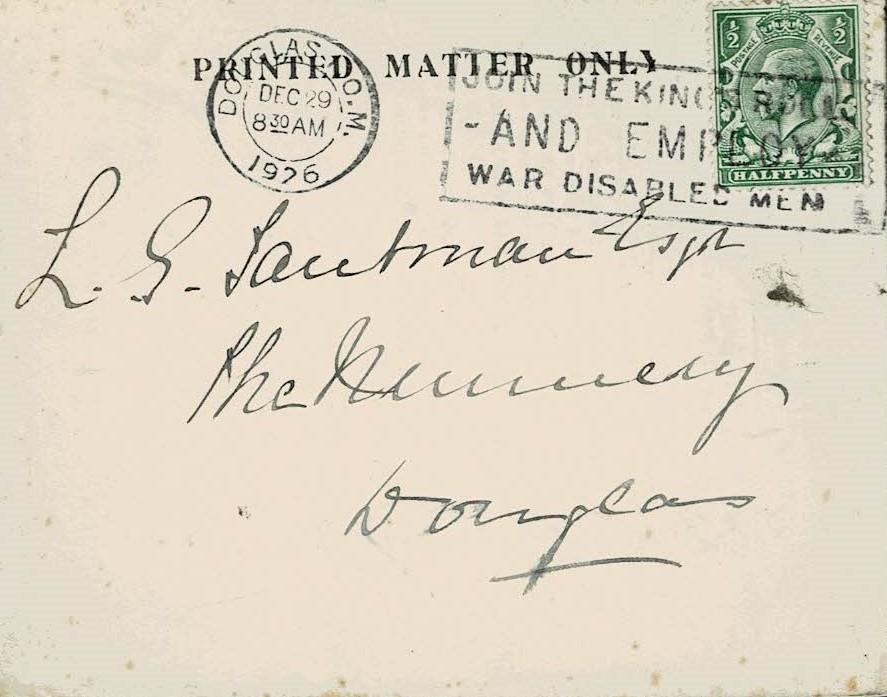 PRINTED MATTER ONLY
DOUGLAS I.O.M.
DEC 29
8 30 AM
1926
JOIN THE KING'S ROLL
- AND EMPLOY -
WAR DISABLED MEN
1/2 1/2
POSTAGE REVENUE
HALFPENNY
L. G. Esqr
The Nunnery
Douglas